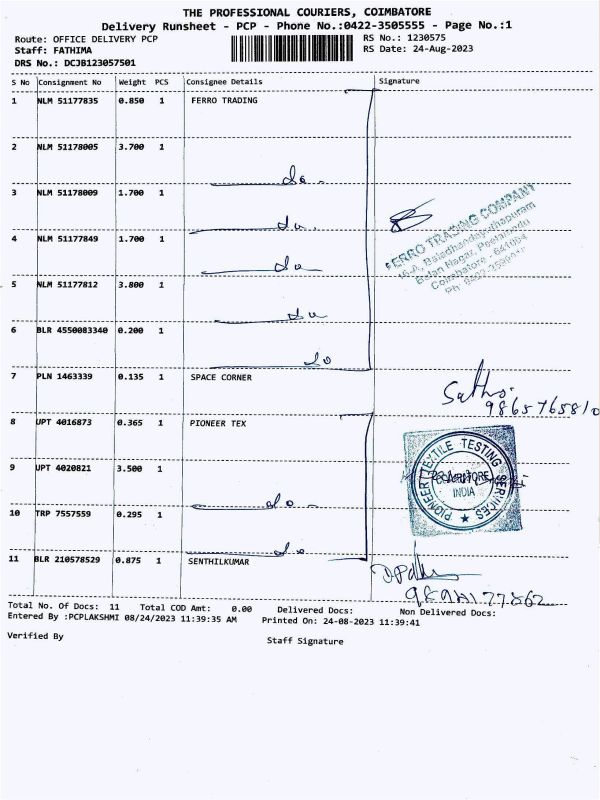 THE PROFESSIONAL COURIERS, COIMBATORE
Delivery Runsheet - PCP - Phone No.:0422-3505555 - Page No.:1
Route: OFFICE DELIVERY PCP RS No.: 1230575
Staff: FATHIMA RS Date: 24-Aug-2023
DRS No.: DCJB123057501
S No Consignment No Weight PCS Consignee Details Signature
1 NLM 51177835 0.850 1 FERRO TRADING
2 NLM 51178005 3.700 1
do.
3 NLM 51178009 1.700 1
do.
4 NLM 51177849 1.700 1
do
5 NLM 51177812 3.800 1
do
6 BLR 4550083340 0.200 1
do
FERRO TRADING COMPANY
Coimbatore - 641004
7 PLN 1463339 0.135 1 SPACE CORNER
9865765810
8 UPT 4016873 0.365 1 PIONEER TEX
9 UPT 4020821 3.500 1
do.
10 TRP 7557559 0.295 1
do.
PIONEER TEXTILE TESTING SERVICES
COIMBATORE
INDIA
11 BLR 210578529 0.875 1 SENTHILKUMAR
Total No. Of Docs: 11 Total COD Amt: 0.00 Delivered Docs: Non Delivered Docs:
Entered By :PCPLAKSHMI 08/24/2023 11:39:35 AM Printed On: 24-08-2023 11:39:41
Verified By Staff Signature